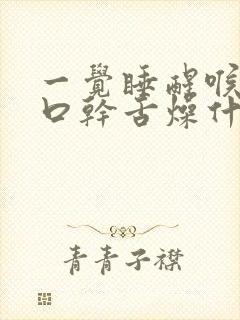 一覺睡醒喉
口幹舌燥什
青青子襟